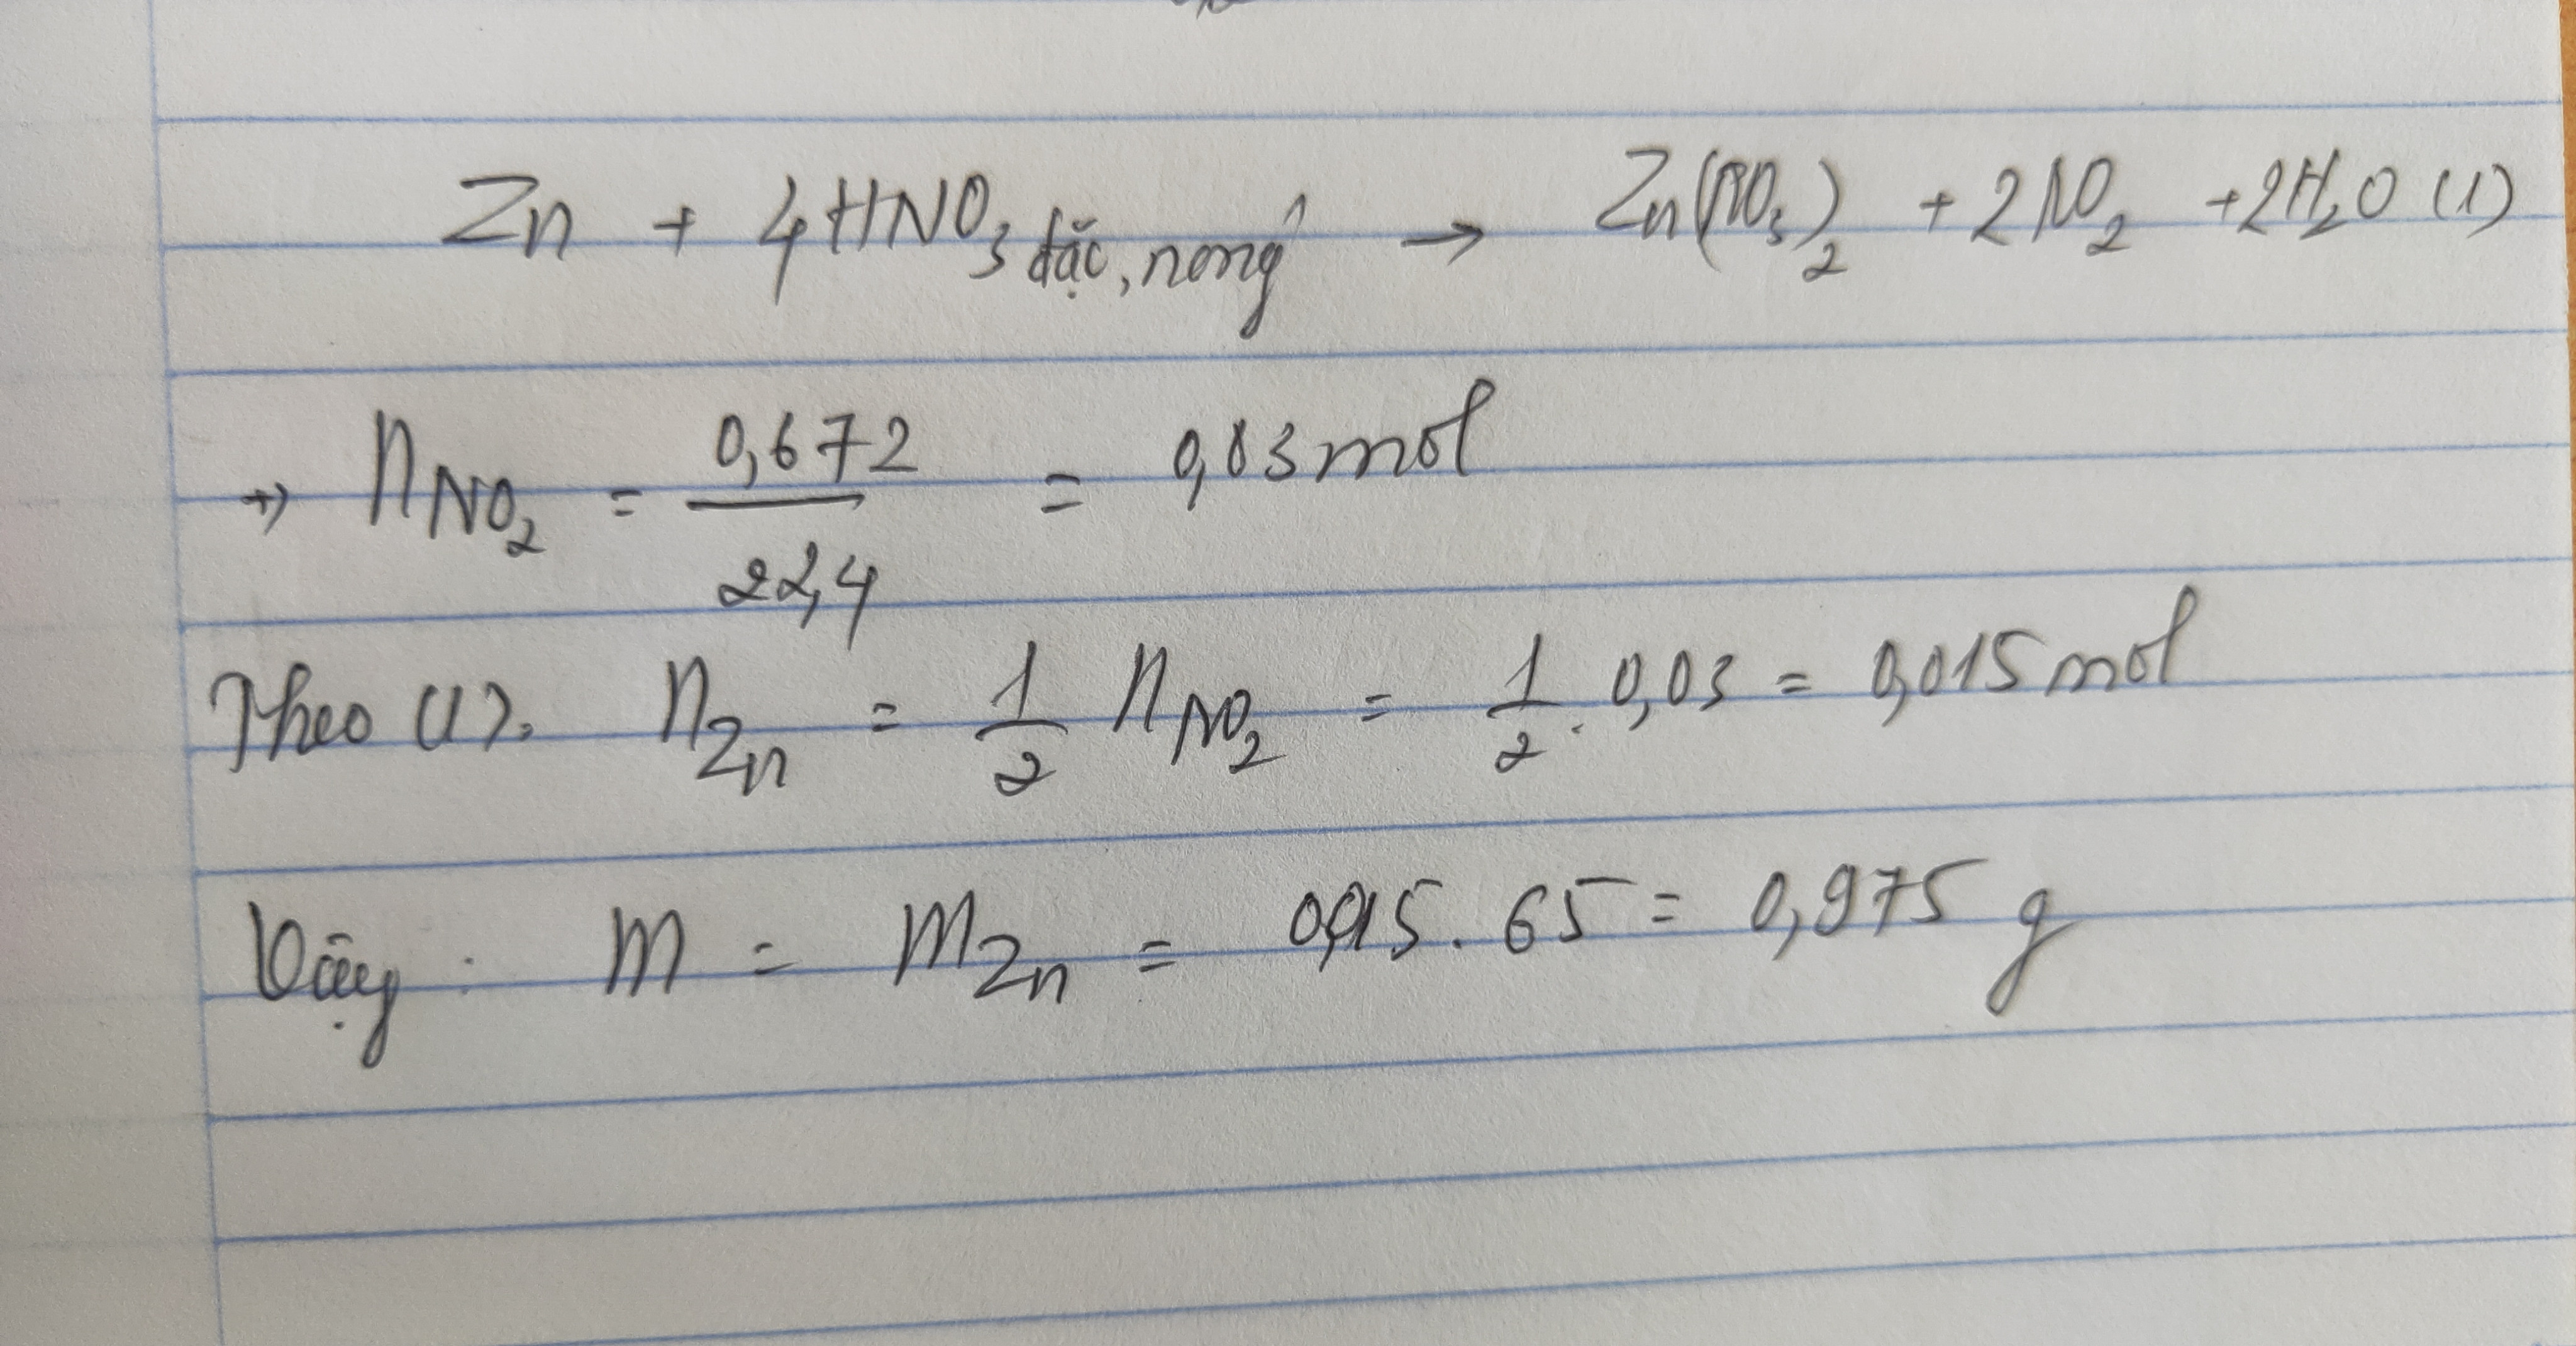 Zn + 4HNO₃ đặc, nóng → Zn(NO₃)₂ + 2NO₂ + 2H₂O (1)
→ n NO₂ = 0,672 / 22,4 = 0,03 mol
Theo (1): n Zn = 1/2 n NO₂ = 1/2 . 0,03 = 0,015 mol
Vậy : m = m Zn = 0,015 . 65 = 0,975 g